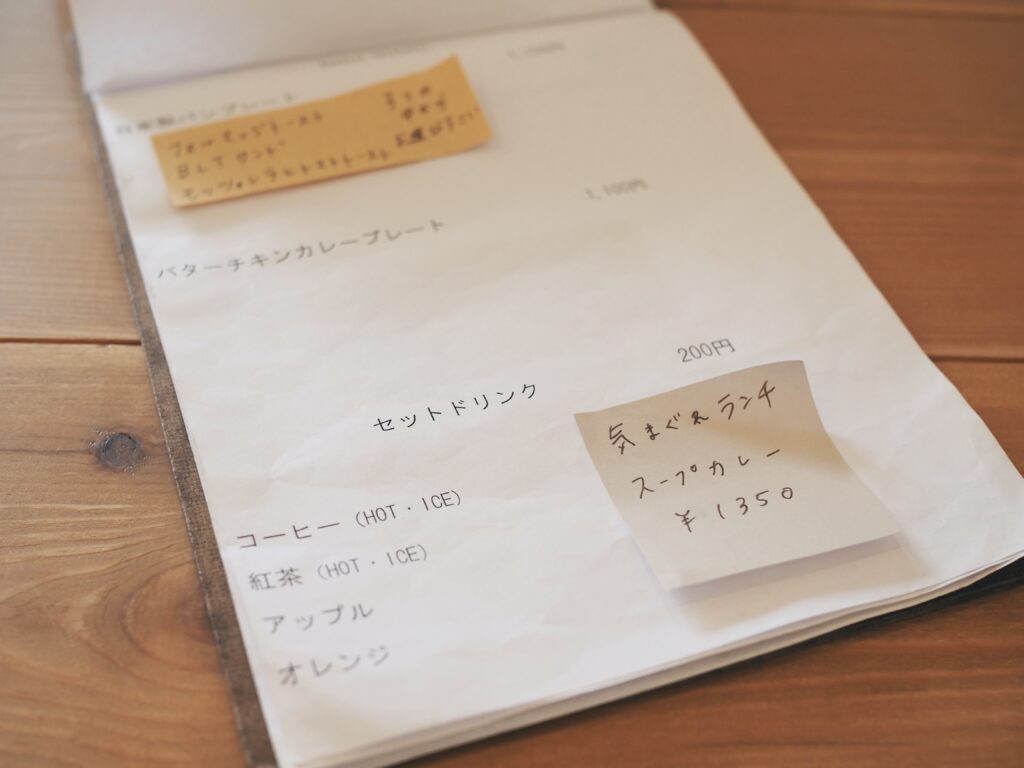 自家製パンプレート
BLTサンド
モッツァレラとトマトトースト
1,100円
バターチキンカレープレート
200円
セットドリンク
気まぐれランチ
スープカレー
¥1350
コーヒー（HOT・ICE）
紅茶（HOT・ICE）
アップル
オレンジ